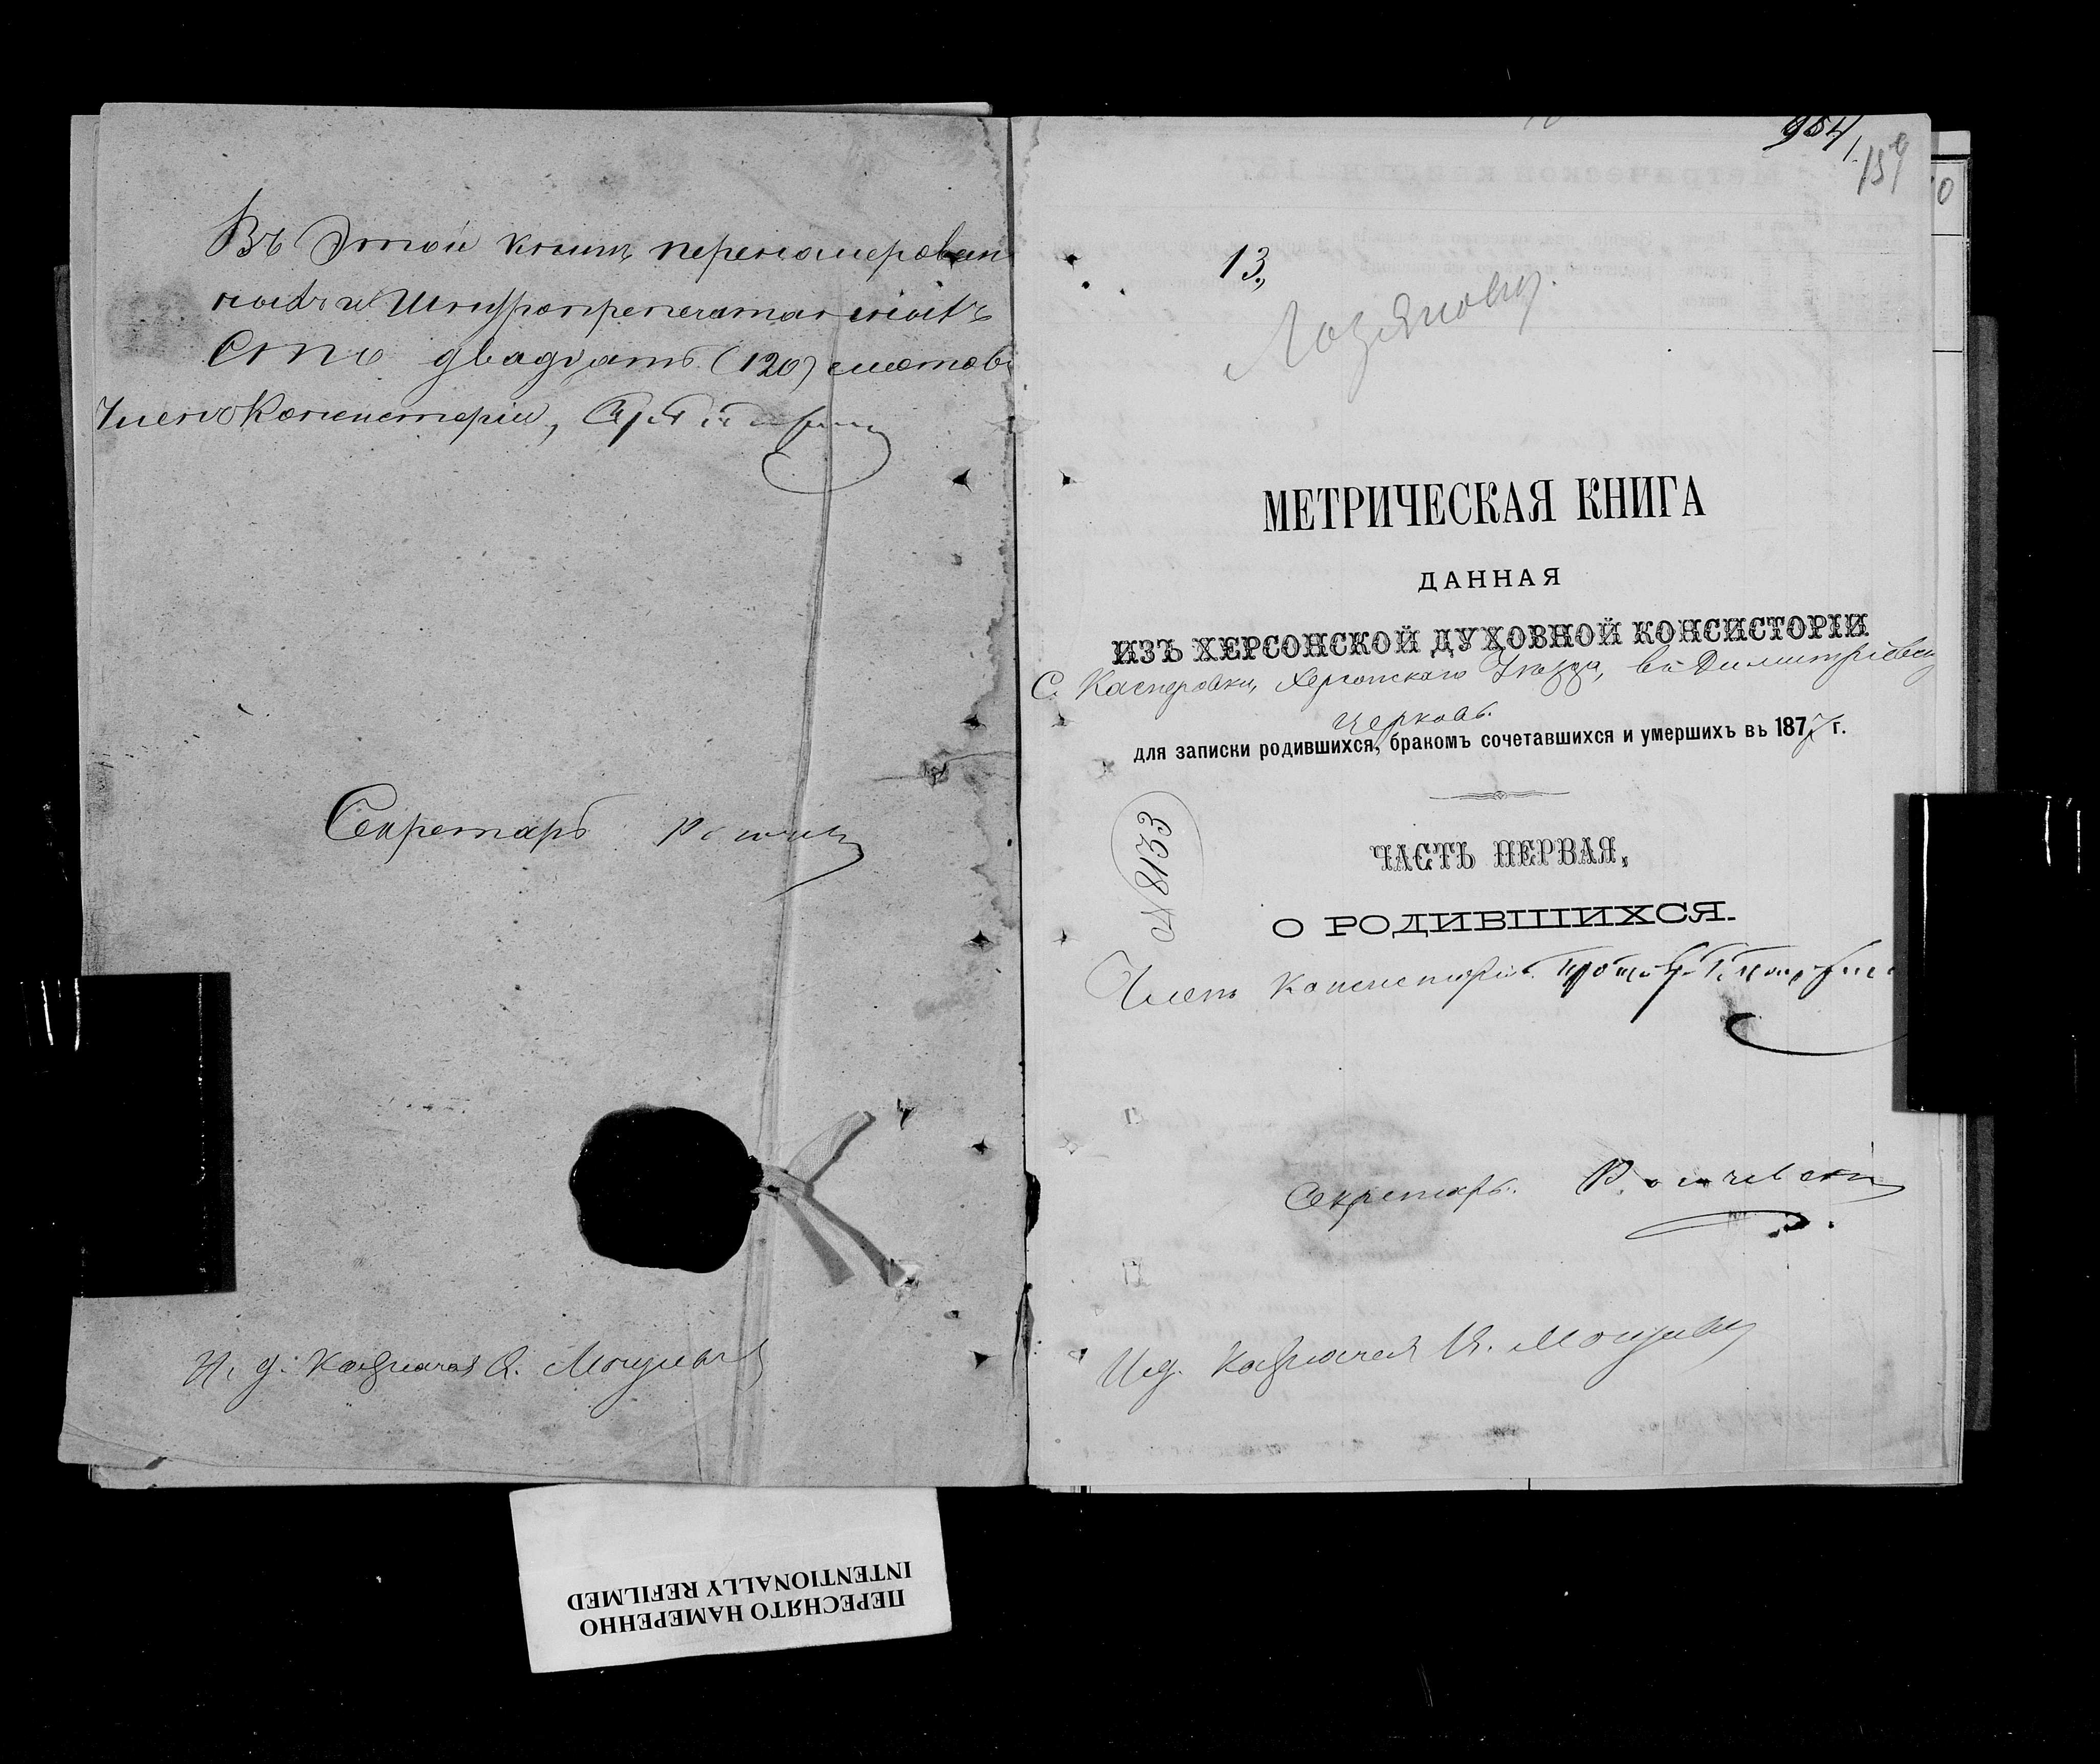 Въ этой книгѣ переномерован
ныхъ и шнуропрепечатанныхъ
Сто двадцать (120) листовъ
Членъ Консисторіи,
Секретарь
И. д. Казначея
954
1.
159
13.
МЕТРИЧЕСКАЯ КНИГА
ДАННАЯ
ИЗЪ ХЕРСОНСКОЙ ДУХОВНОЙ КОНСИСТОРІИ
С. Касперовки, Херсонскаго Уѣзда, въ Димитріевскую
церковь.
для записки родившихся, бракомъ сочетавшихся и умершихъ въ 1877 г.
№ 8133
ЧАСТЬ ПЕРВАЯ,
О РОДИВШИХСЯ.
Членъ Консисторіи
Секретарь
И.д. Казначея
ПЕРЕСНЯТО НАМЕРЕННО
INTENTIONALLY REFILMED